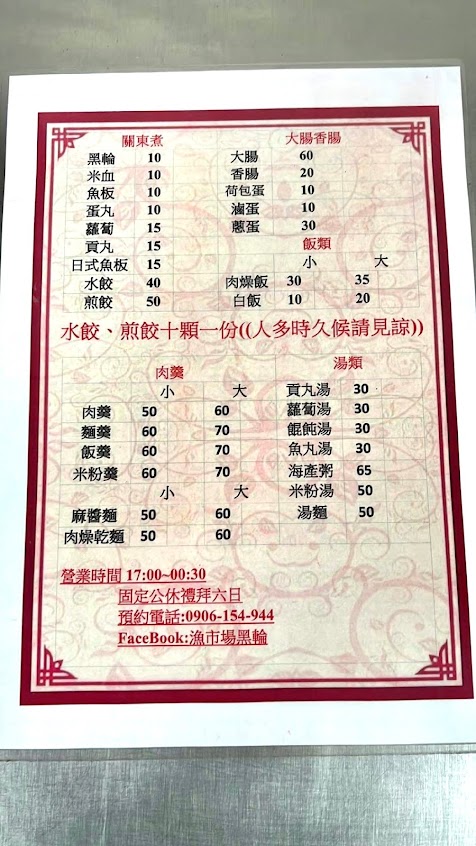 關東煮 大腸香腸
黑輪 10 大腸 60
米血 10 香腸 20
魚板 10 荷包蛋 10
蛋丸 10 滷蛋 10
蘿蔔 15 蔥蛋 30
貢丸 15 飯類
日式魚板 15 小 大
水餃 40 肉燥飯 30 35
煎餃 50 白飯 10 20
水餃、煎餃十顆一份((人多時久候請見諒))
肉羹 湯類
小 大 貢丸湯 30
肉羹 50 60 蘿蔔湯 30
麵羹 60 70 餛飩湯 30
飯羹 60 70 魚丸湯 30
米粉羹 60 70 海產粥 65
小 大 米粉湯 50
麻醬麵 50 60 湯麵 50
肉燥乾麵 50 60
營業時間 17:00~00:30
固定公休禮拜六日
預約電話:0906-154-944
FaceBook:漁市場黑輪